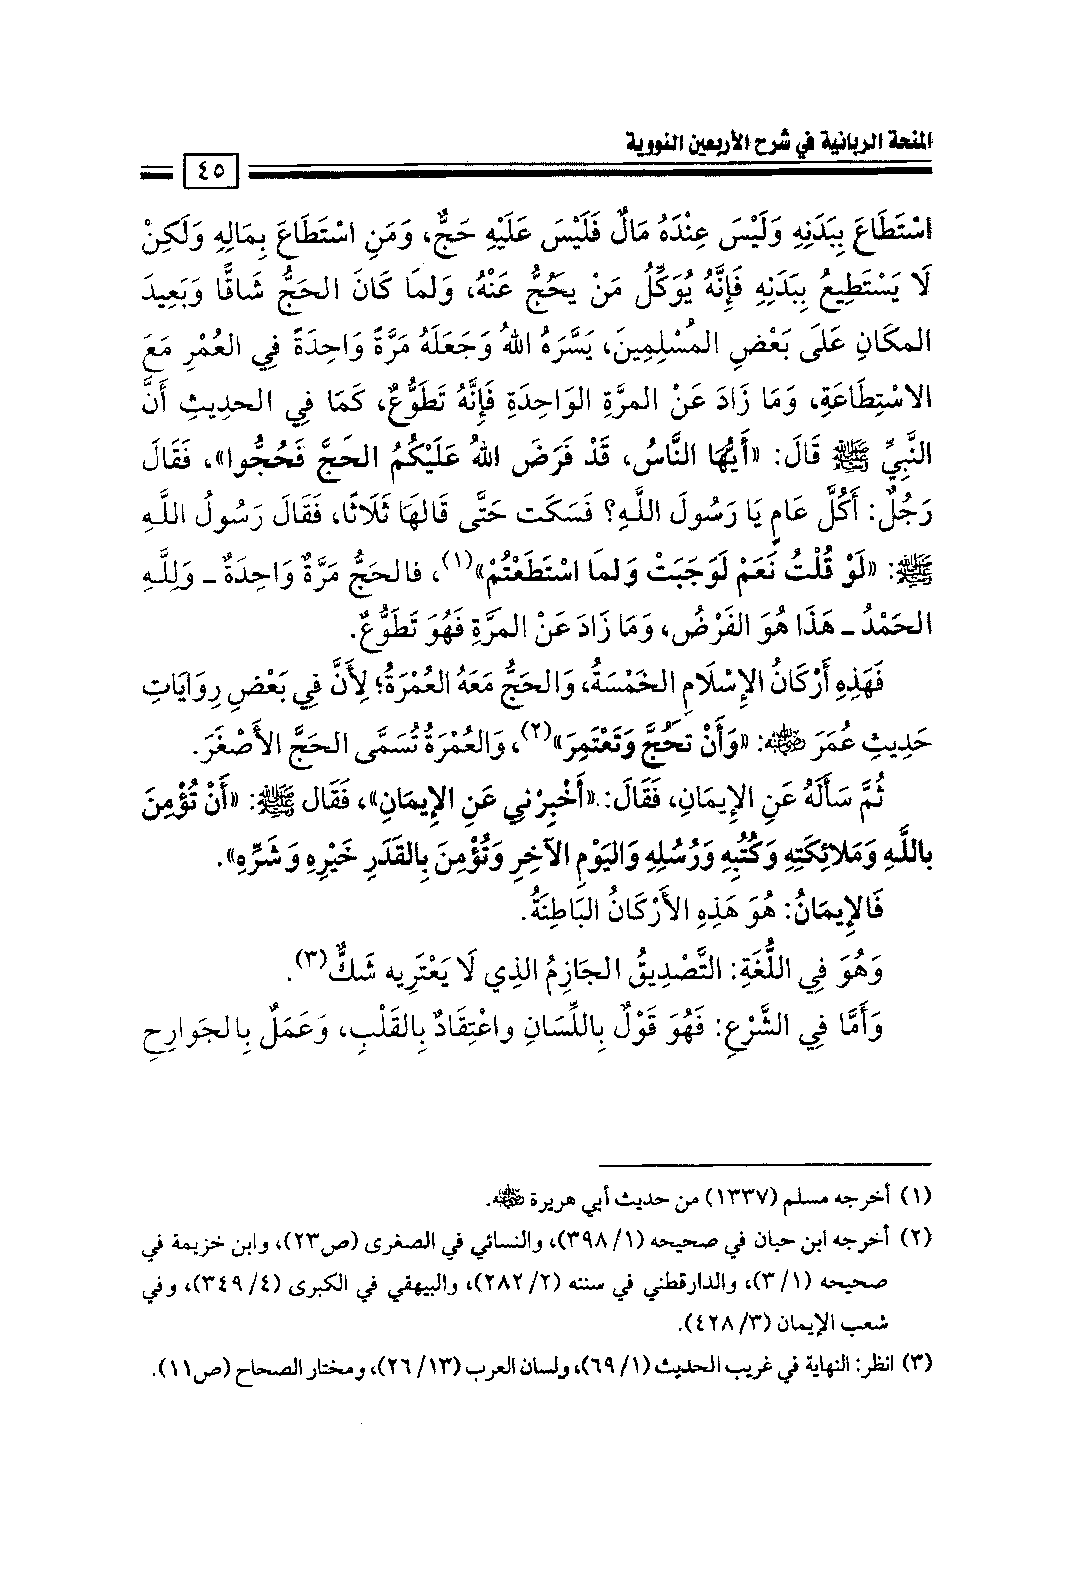 المنحة الربانية في شرح الأربعين النووية
٤٥
اسْتَطَاعَ بِبَدَنِهِ وَلَيْسَ عِنْدَهُ مَالٌ فَلَيْسَ عَلَيْهِ حَجٌّ، وَمَنِ اسْتَطَاعَ بِمَالِهِ وَلَكِنْ
لَا يَسْتَطِيعُ بِبَدَنِهِ فَإِنَّهُ يُوَكِّلُ مَنْ يَحُجُّ عَنْهُ، وَلمَا كَانَ الحَجُّ شَاقًّا وَبَعِيدَ
المكَانِ عَلَى بَعْضِ المُسْلِمِينَ، يَسَّرَهُ اللهُ وَجَعَلَهُ مَرَّةً وَاحِدَةً فِي العُمْرِ مَعَ
الاسْتِطَاعَةِ، وَمَا زَادَ عَنْ المرَّةِ الوَاحِدَةِ فَإِنَّهُ تَطَوُّعٌ، كَمَا فِي الحَدِيثِ أَنَّ
النَّبِيِّ ﷺ قَالَ: «أَيُّهَا النَّاسُ، قَدْ فَرَضَ اللهُ عَلَيْكُمُ الحَجَّ فَحُجُّوا»، فَقَالَ
رَجُلٌ: أَكُلَّ عَامٍ يَا رَسُولَ اللَّهِ؟ فَسَكَت حَتَّى قَالهَا ثَلَاثًا، فَقَالَ رَسُولُ اللَّهِ
ﷺ: «لَوْ قُلْتُ نَعَمْ لَوَجَبَتْ وَلمَا اسْتَطَعْتُمْ»(١)، فالحَجُّ مَرَّةٌ وَاحِدَةٌ ـ وَلِلَّهِ
الحَمْدُ ـ هَذَا هُوَ الفَرْضُ، وَمَا زَادَ عَنْ المَرَّةِ فَهُوَ تَطَوُّعٌ.
فَهَذِهِ أَرْكَانُ الإِسْلَامِ الخَمْسَةُ، وَالحَجُّ مَعَهُ العُمْرَةُ؛ لِأَنَّ فِي بَعْضِ رِوَايَاتِ
حَدِيثِ عُمَرَ رضي الله عنه: «وَأَنْ تَحُجَّ وَتَعْتَمِرَ»(٢)، وَالعُمْرَةُ تُسَمَّى الحَجَّ الأَصْغَرَ.
ثُمَّ سَأَلَهُ عَنِ الإِيمَانِ، فَقَالَ: «أَخْبِرْنِي عَنِ الإِيمَانِ»، فَقَال ﷺ: «أَنْ تُؤْمِنَ
بِاللَّهِ وَمَلائِكَتِهِ وَكُتُبِهِ وَرُسُلِهِ وَاليَوْمِ الآخِرِ وَتُؤْمِنَ بِالقَدَرِ خَيْرِهِ وَشَرِّهِ».
فَالإِيمَانُ: هُوَ هَذِهِ الأَرْكَانُ البَاطِنَةُ.
وَهُوَ فِي اللُّغَةِ: التَّصْدِيقُ الجَازِمُ الذِي لَا يَعْتَرِيه شَكٌّ(٣).
وَأَمَّا فِي الشَّرْعِ: فَهُوَ قَوْلٌ بِاللِّسَانِ واعْتِقَادٌ بِالقَلْبِ، وَعَمَلٌ بِالجَوارِحِ
(١) أخرجه مسلم (١٣٣٧) من حديث أبي هريرة رضي الله عنه.
(٢) أخرجه ابن حبان في صحيحه (١/ ٣٩٨)، والنسائي في الصغرى (ص٢٣)، وابن خزيمة في
صحيحه (١/ ٣)، والدارقطني في سننه (٢/ ٢٨٢)، والبيهقي في الكبرى (٤/ ٣٤٩)، وفي
شعب الإيمان (٣/ ٤٢٨).
(٣) انظر: النهاية في غريب الحديث (١/ ٦٩)، ولسان العرب (١٣/ ٢٦)، ومختار الصحاح (ص١١).